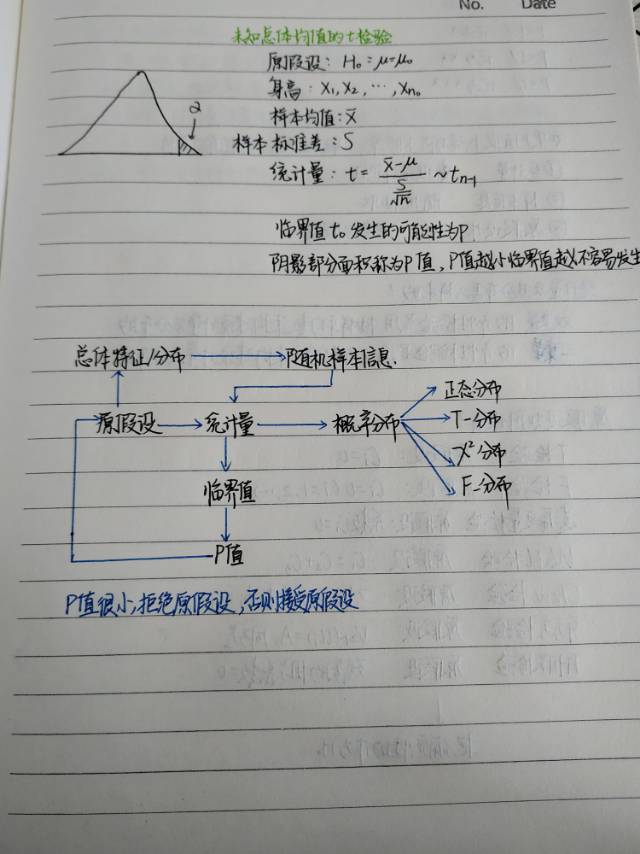 No. Date
未知总体均值的t检验
原假设: H₀=μ=μ₀
身高: x₁,x₂,…,xn₀
样本均值: x̄
α
样本标准差: S
统计量: t= (x̄-μ)/(S/√n) ~tn-1
临界值t₀发生的可能性为P
阴影部分面积称为P值,P值越小临界值越不容易发生
总体特征/分布 随机样本信息.
原假设 统计量 概率分布
正态分布
T-分布
X²分布
F-分布
临界值
P值
P值很小,拒绝原假设,否则接受原假设